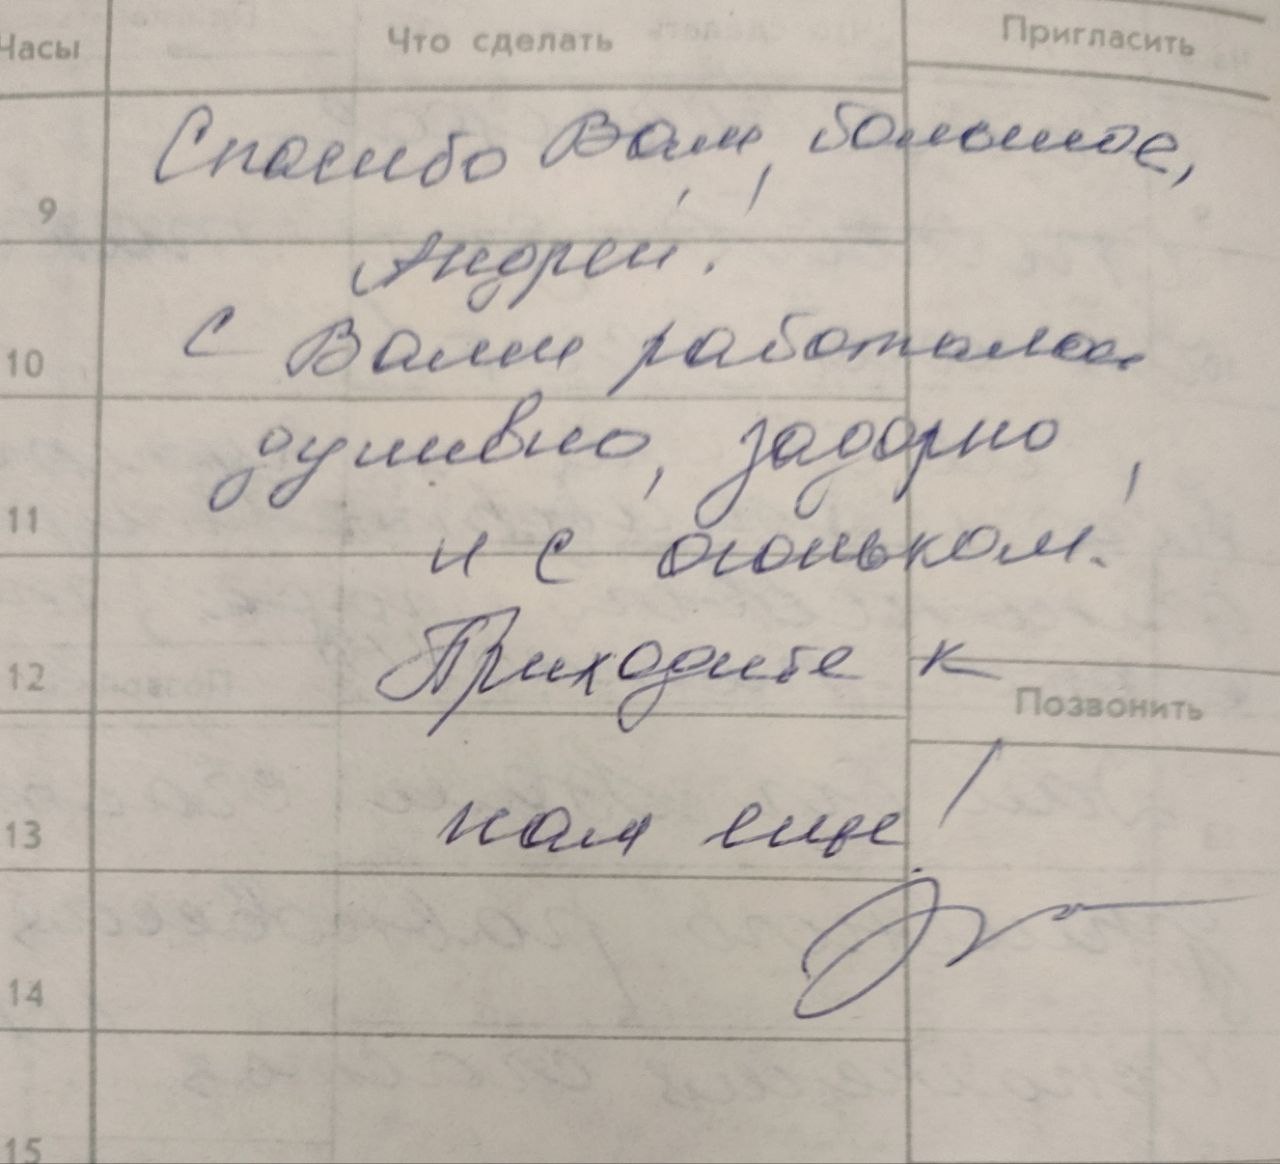 Часы Что сделать Пригласить
Спасибо Вам большое,
9
Андрей!
С Вами работалось
10
душевно, задорно
11
и с огоньком!
Приходите к
12
Позвонить
нам еще!
13
14
15